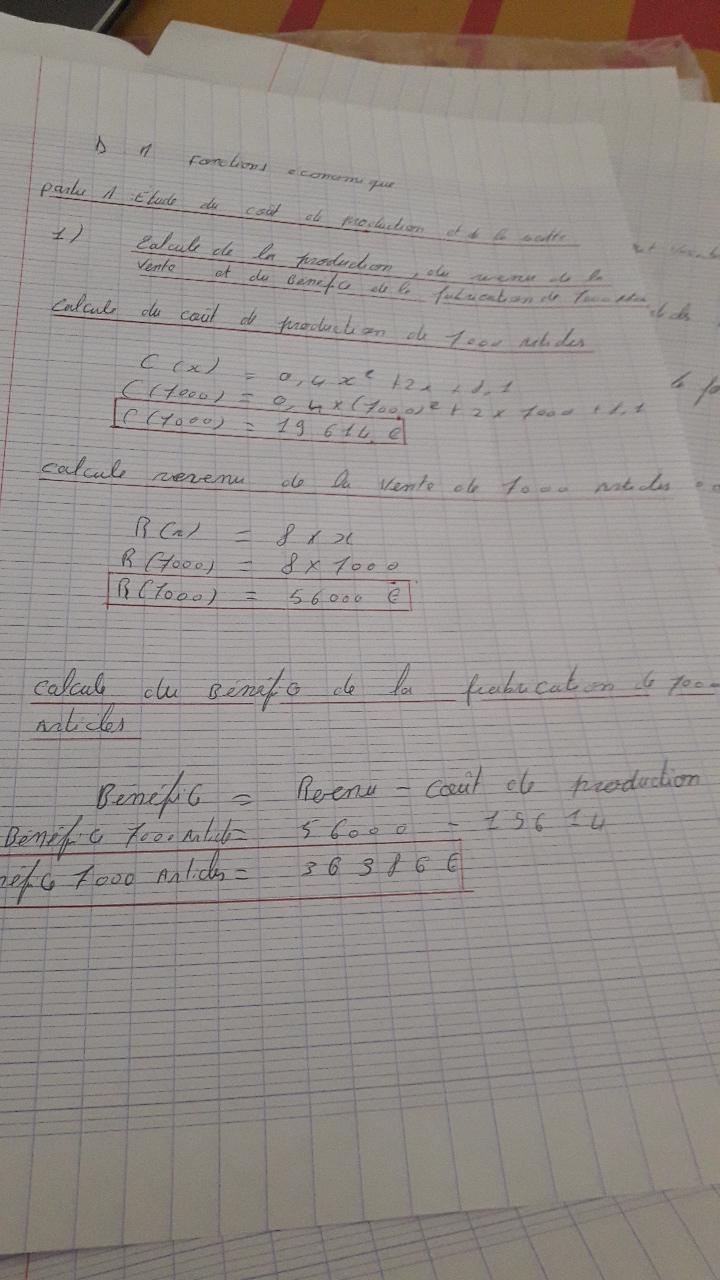 D M Fonctions economique
partie A Etude du coût de production et de la
1) Calcule de la production, du revenu de la
vente et du Bénéfice de la fabrication de 7000
Calcule du coût de production de 7000 Articles
C(x) = 0,4x² + 2x + 1,1
C(7000) = 0,4 x (7000)² + 2 x 7000 + 1,1
C(7000) = 19 614 €
Calcule revenu de la vente de 7000 Articles
R(x) = 8 x x
R(7000) = 8 x 7000
R(7000) = 56000 €
Calcule du Bénéfice de la fabrication de 7000
Articles
Bénéfice = Revenu - Coût de production
Bénéfice 7000 Article = 56000 - 19614
néfice 7000 Articles = 36386 €